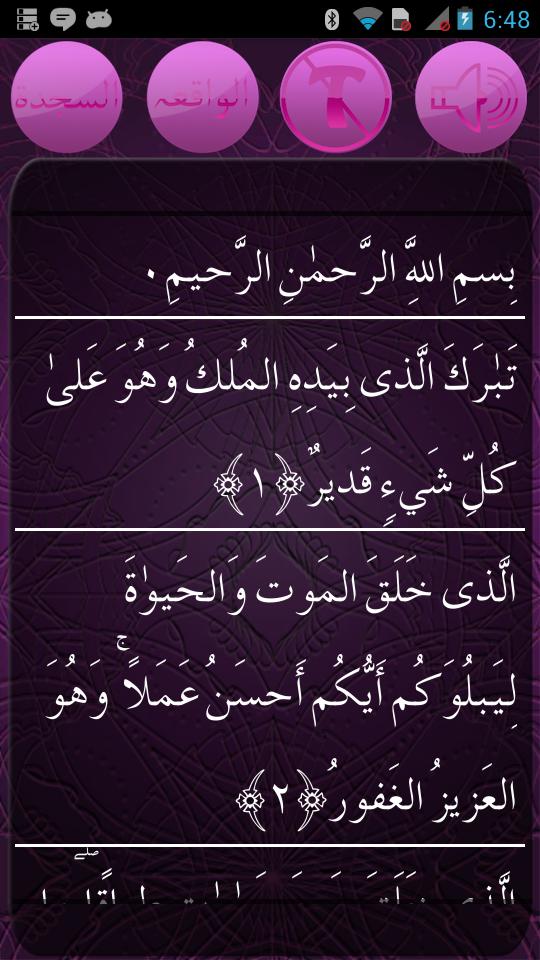 6:48
السجدة الواقعہ T
بِسمِ اللهِ الرَّحمٰنِ الرَّحيمِ ۰
تَبٰرَكَ الَّذى بِيَدِهِ المُلكُ وَهُوَ عَلىٰ
كُلِّ شَيءٍ قَديرٌ ﴿١﴾
الَّذى خَلَقَ المَوتَ وَالحَيوٰةَ
لِيَبلُوَكُم أَيُّكُم أَحسَنُ عَمَلًا ۚ وَهُوَ
العَزيزُ الغَفورُ ﴿٢﴾